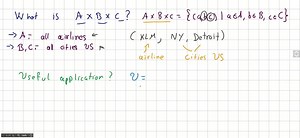 What is A × B × C ? A × B × C = {(a,b,c) | a ∈ A, b ∈ B, c ∈ C}
→ A = all airlines ← (KLM, NY, Detroit)
→ B, C = all cities US ← airline cities US
Useful application? U =